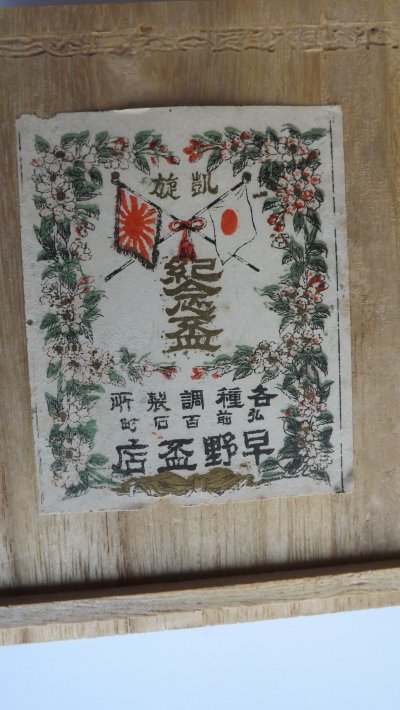 凱旋
紀念盃
各種調製所
弘前百石町
早野盃店